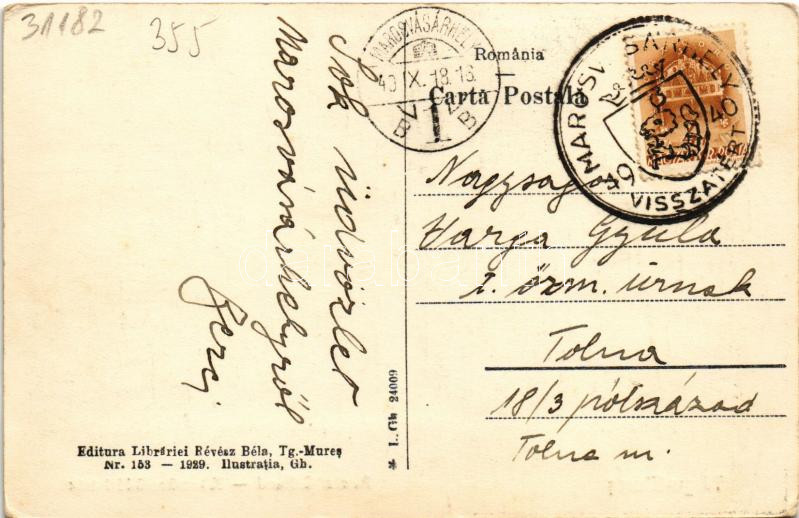 31182
355
România
Carta Postala
MAROSVÁSÁRHELY
40 IX. 18. 18
1
B
MAROSVÁSÁRHELY
VISSZATÉRT
1940
Sok üdvözlet
Marosvásárhelyről
Nagyságos
Varga Gyula
úrnak
Tolna
18/3 pótszázad
Tolna m.
Editura Librăriei Révész Béla, Tg.-Mureș
Nr. 153 — 1929. Ilustrația, Gh.
* I. Gh 24009
darabanth